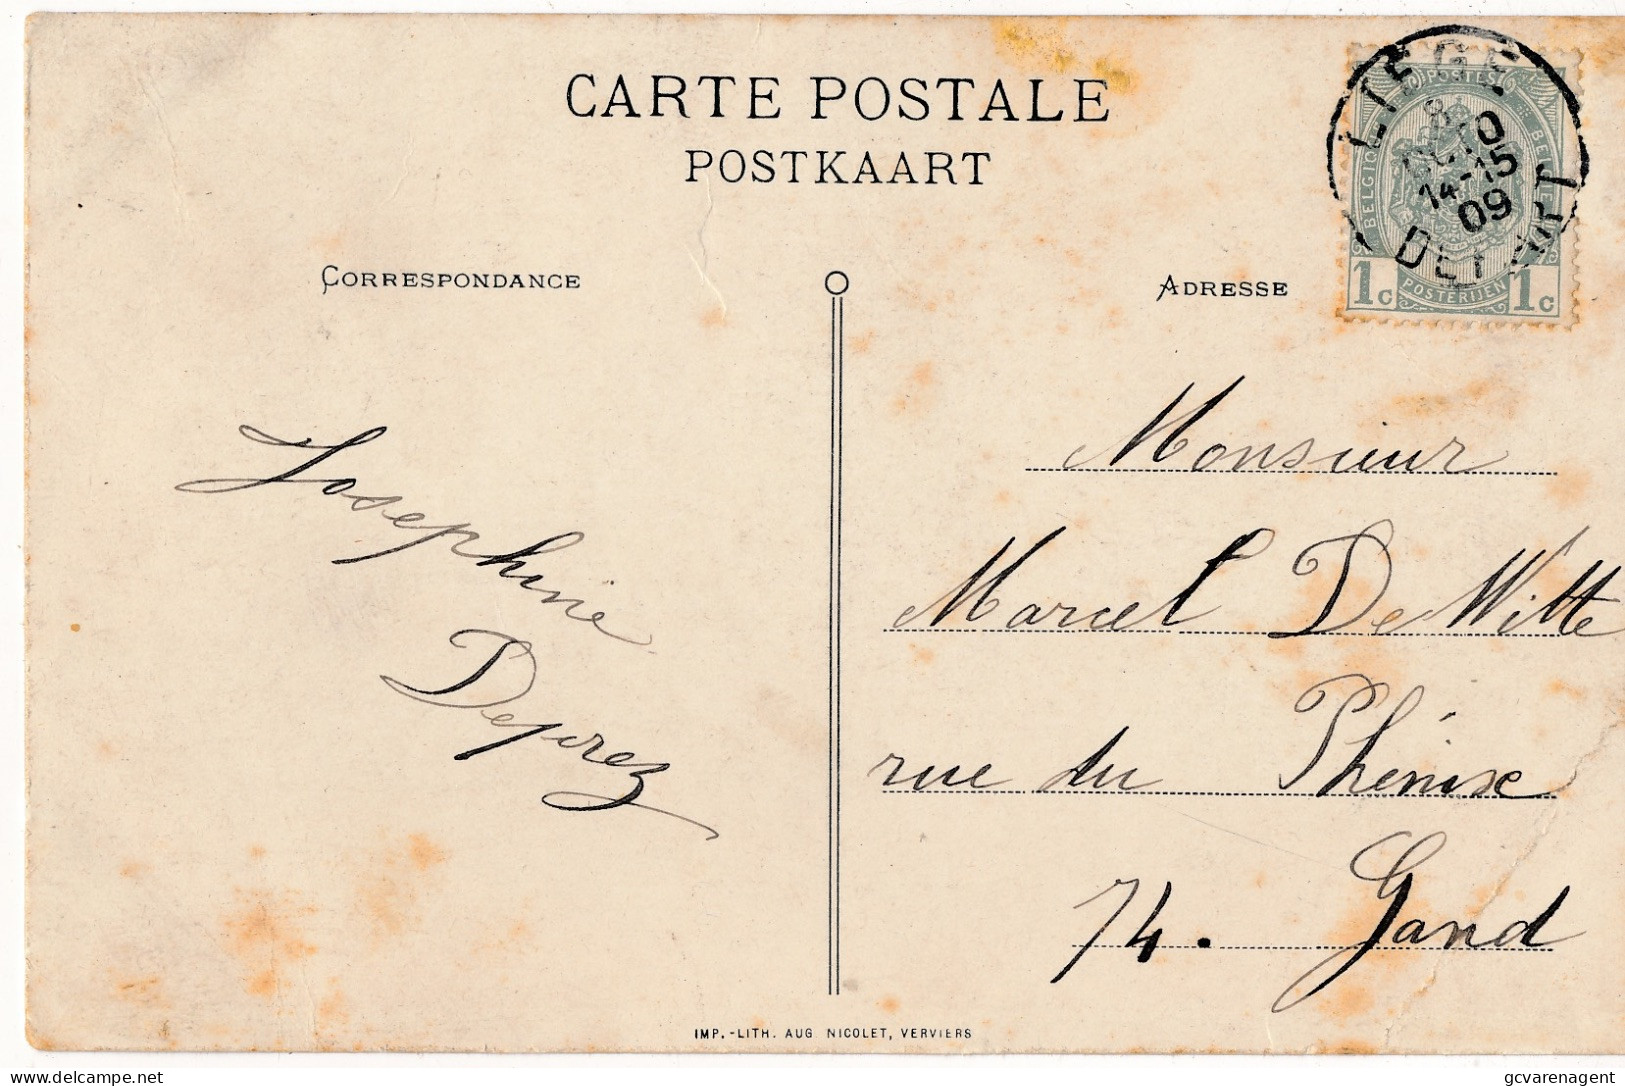 CARTE POSTALE
POSTKAART
CORRESPONDANCE
ADRESSE
LIEGE
8
14-15
09
DEPART
POSTES
BELGIQUE
BELGIË
1c POSTERIJEN 1c
Josephine
Deprez
Monsieur
Marcel De Witte
rue du Phénixe
74. Gand
IMP.-LITH. AUG. NICOLET, VERVIERS
delcampe.net
gcvarenagent